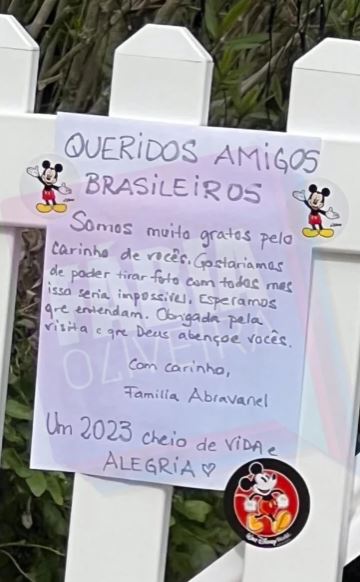 QUERIDOS AMIGOS
BRASILEIROS
Somos muito gratos pelo
carinho de vocês. Gostaríamos
de poder tirar foto com todos mas
isso seria impossível. Esperamos
que entendam. Obrigada pela
visita e que Deus abençoe vocês.
Com carinho,
Família Abravanel
Um 2023 cheio de VIDA e
ALEGRIA ♡
OLIVEIRA